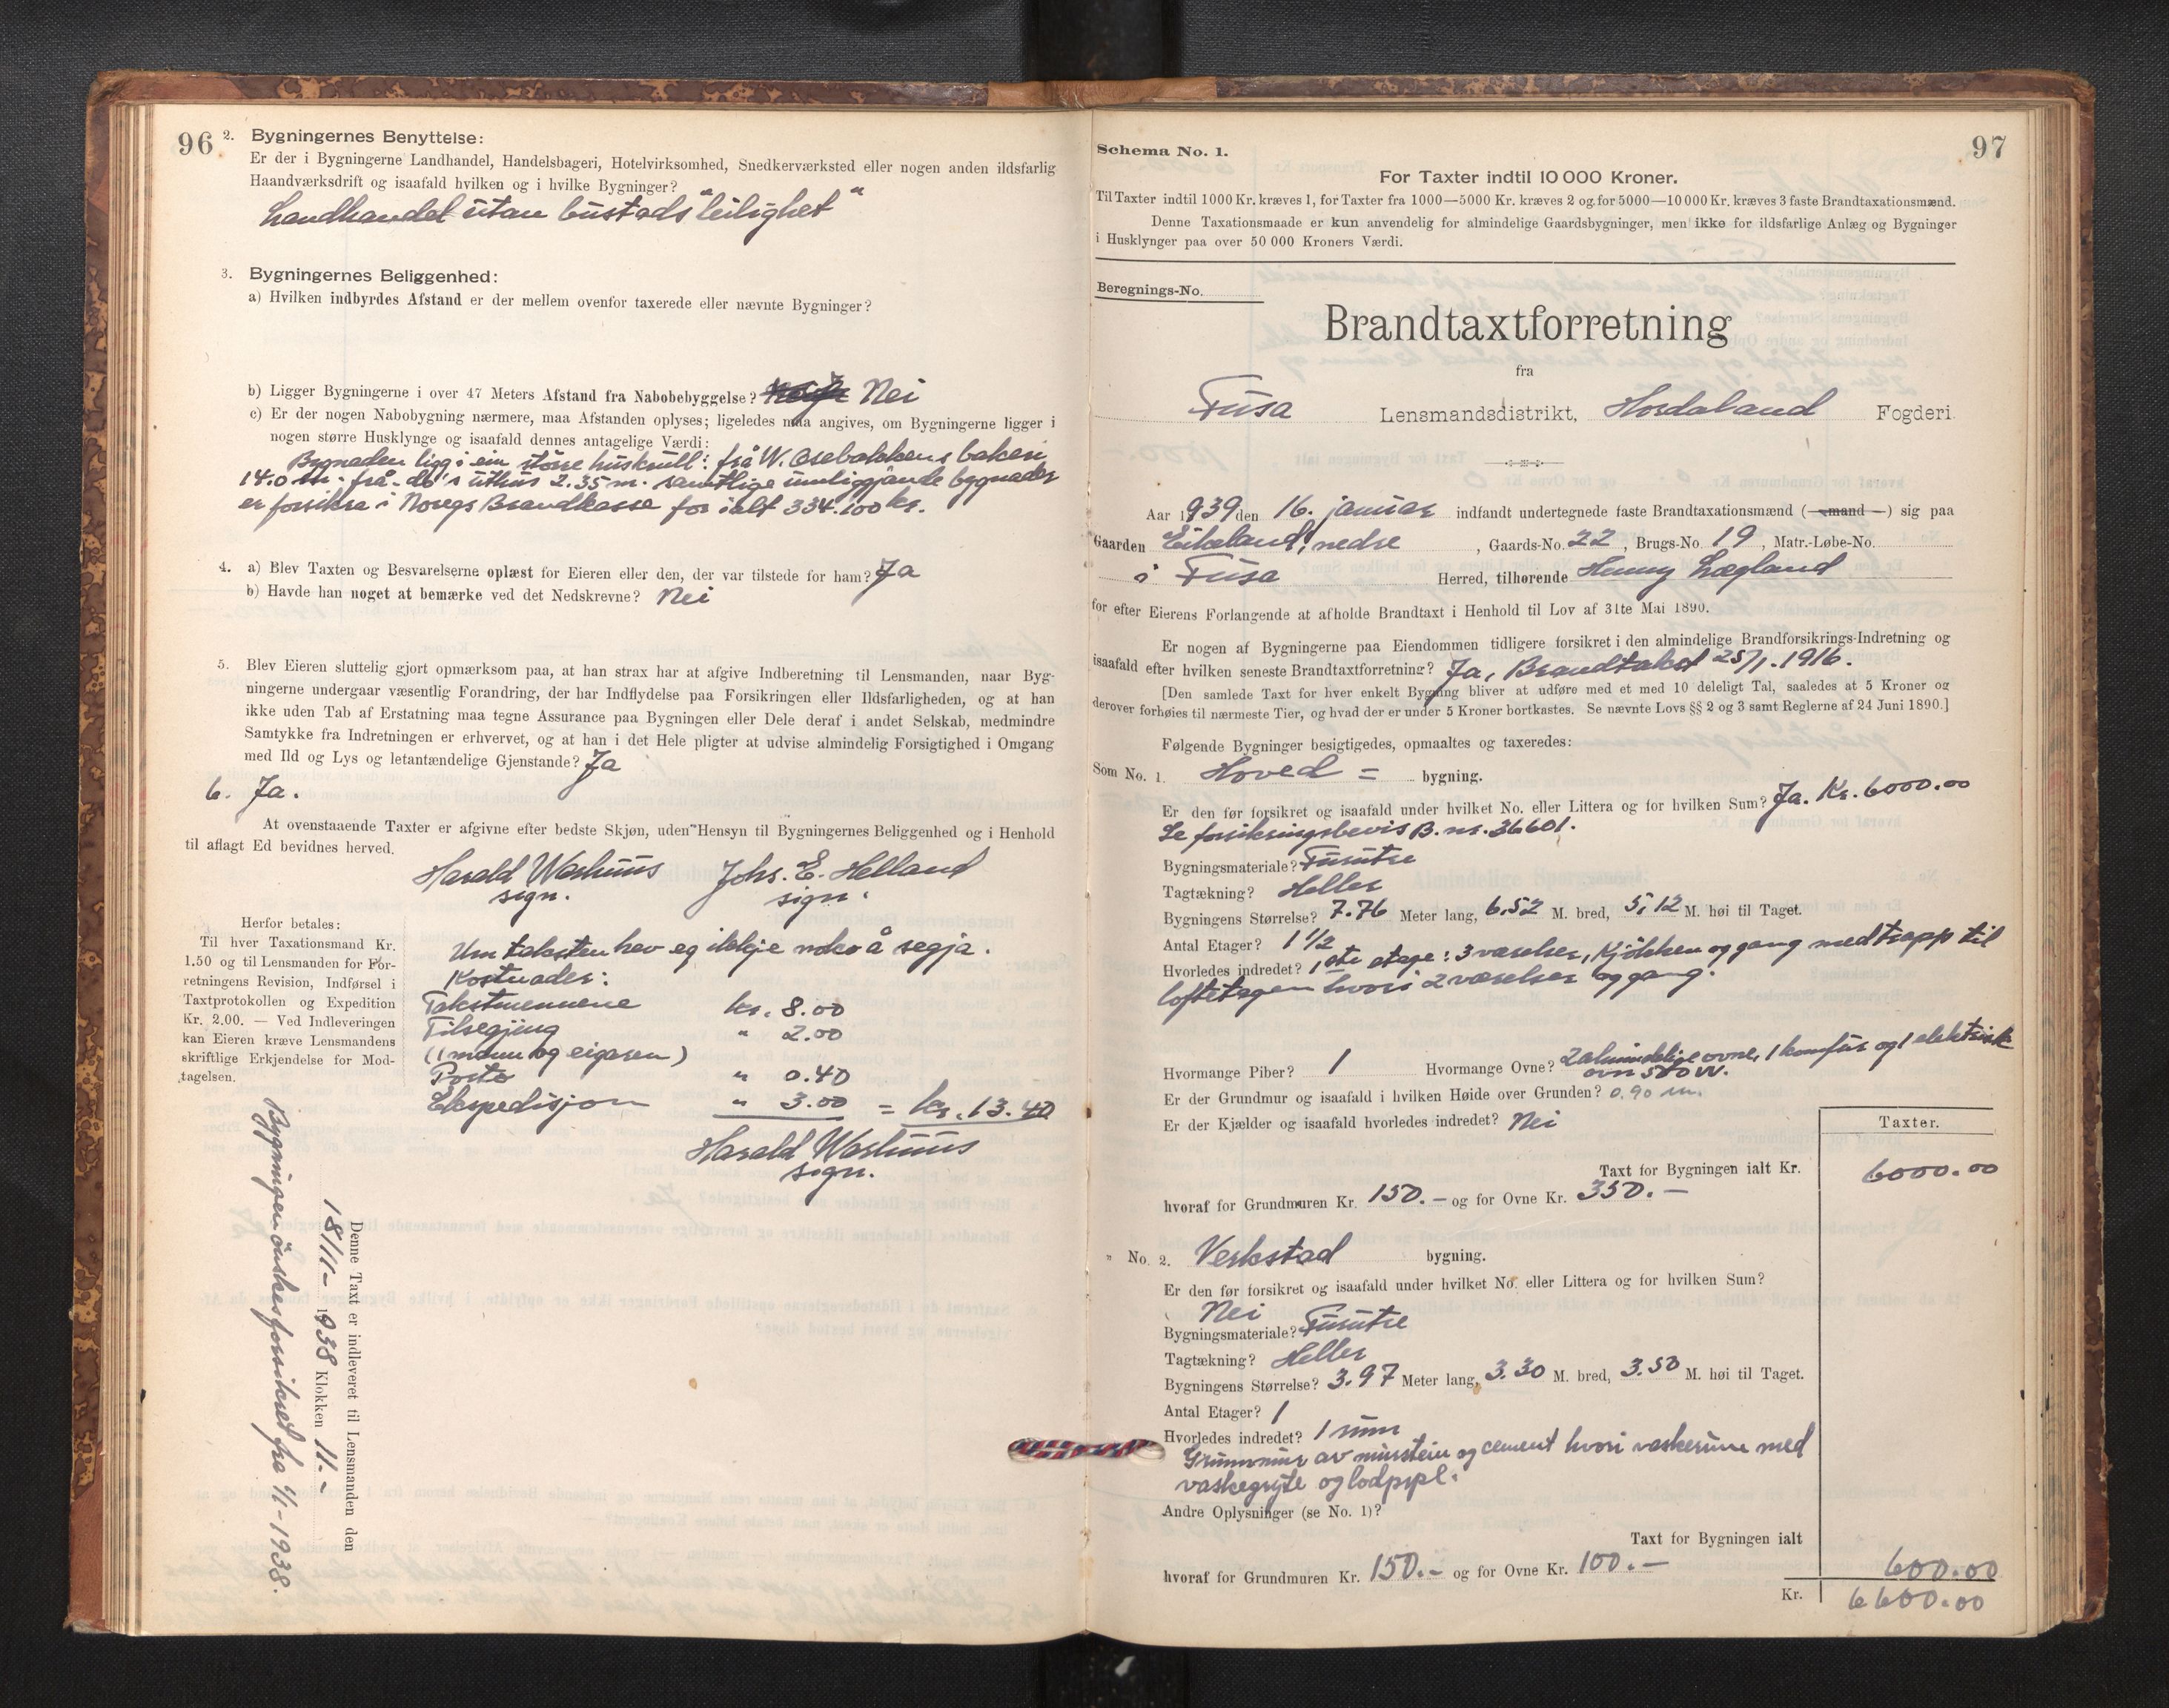 96
2. Bygningernes Benyttelse:
Er der i Bygningerne Landhandel, Handelsbageri, Hotelvirksomhed, Snedkerværksted eller nogen anden ildsfarlig
Haandværksdrift og isaafald hvilken og i hvilke Bygninger?
Landhandel utan bustads"leilighet"
3. Bygningernes Beliggenhed:
a) Hvilken indbyrdes Afstand er der mellem ovenfor taxerede eller nævnte Bygninger?
b) Ligger Bygningerne i over 47 Meters Afstand fra Nabobebyggelse? Nei
c) Er der nogen Nabobygning nærmere, maa Afstanden oplyses; ligeledes maa angives, om Bygningerne ligger i
nogen større Husklynge og isaafald dennes antagelige Værdi:
Bygnaden ligg i ein större huskrull: frå W. Osebakkens bakeri
14.0 m. frå - do's uthus 2.35 m. samtlige umliggjande bygnader
er forsikra i Noregs Brandkasse for ialt 334.100 kr.
4. a) Blev Taxten og Besvarelserne oplæst for Eieren eller den, der var tilstede for ham? Ja
b) Havde han noget at bemærke ved det Nedskrevne? Nei
5. Blev Eieren sluttelig gjort opmærksom paa, at han strax har at afgive Indberetning til Lensmanden, naar Byg-
ningerne undergaar væsentlig Forandring, der har Indflydelse paa Forsikringen eller Ildsfarligheden, og at han
ikke uden Tab af Erstatning maa tegne Assurance paa Bygningen eller Dele deraf i andet Selskab, medmindre
Samtykke fra Indretningen er erhvervet, og at han i det Hele pligter at udvise almindelig Forsigtighed i Omgang
med Ild og Lys og letantændelige Gjenstande? Ja
6. Ja.
At ovenstaaende Taxter er afgivne efter bedste Skjøn, uden Hensyn til Bygningernes Beliggenhed og i Henhold
til aflagt Ed bevidnes herved.
Harald Warhuus Johs. E. Helland
sign. sign.
Herfor betales:
Til hver Taxationsmand Kr.
1.50 og til Lensmanden for For-
retningens Revision, Indførsel i
Taxtprotokollen og Expedition
Kr. 2.00. — Ved Indleveringen
kan Eieren kræve Lensmandens
skriftlige Erkjendelse for Mod-
tagelsen.
Um taksten hev eg ikkje noko å segja.
Kostnader:
Takstmennene kr. 8.00
Tilsegjing " 2.00
(1 mann og eigaren)
Porto " 0.40
Ekspedisjon " 3.00 = kr. 13.40
Harald Warhuus
sign.
Denne Taxt er indleveret til Lensmanden den
18/11- 1938 Klokken 11.-
Bygningen önskes forsikret fra 1/1-1938.
97
Schema No. 1.
For Taxter indtil 10 000 Kroner.
Til Taxter indtil 1000 Kr. kræves 1, for Taxter fra 1000—5000 Kr. kræves 2 og for 5000—10 000 Kr. kræves 3 faste Brandtaxationsmænd.
Denne Taxationsmaade er kun anvendelig for almindelige Gaardsbygninger, men ikke for ildsfarlige Anlæg og Bygninger
i Husklynger paa over 50 000 Kroners Værdi.
Beregnings-No.
Brandtaxtforretning
fra
Fusa Lensmandsdistrikt, Hordaland Fogderi
Aar 1939 den 16. januar indfandt undertegnede faste Brandtaxationsmænd (—mand—) sig paa
Gaarden Eikeland, nedre, Gaards-No. 22, Brugs-No. 19, Matr.-Løbe-No.
i Fusa Herred, tilhørende Henny Lægland
for efter Eierens Forlangende at afholde Brandtaxt i Henhold til Lov af 31te Mai 1890.
Er nogen af Bygningerne paa Eiendommen tidligere forsikret i den almindelige Brandforsikrings-Indretning og
isaafald efter hvilken seneste Brandtaxtforretning? Ja, Brandtakst 25/1. 1916.
[Den samlede Taxt for hver enkelt Bygning bliver at udføre med et med 10 deleligt Tal, saaledes at 5 Kroner og
derover forhøies til nærmeste Tier, og hvad der er under 5 Kroner bortkastes. Se nævnte Lovs §§ 2 og 3 samt Reglerne af 24 Juni 1890.]
Følgende Bygninger besigtigedes, opmaaltes og taxeredes:
Som No. 1. Hoved = bygning.
Er den før forsikret og isaafald under hvilket No. eller Littera og for hvilken Sum? Ja. Kr. 6000.00
Se forsikringsbevis B. nr. 36601.
Bygningsmateriale? Furutre
Tagtækning? Heller
Bygningens Størrelse? 7.76 Meter lang, 6.52 M. bred, 5,12 M. høi til Taget.
Antal Etager? 1 1/2
Hvorledes indredet? 1ste etage: 3 værelser, Kjökken og gang med trapp til
loftetagen hvori 2 værelser og gang.
Hvormange Piber? 1 Hvormange Ovne? 2 almindelige ovne, 1 komfür og 1 elektrisk
ovn 500 W.
Er der Grundmur og isaafald i hvilken Høide over Grunden? 0,90 m.
Er der Kjælder og isaafald hvorledes indredet? Nei
Taxter.
Taxt for Bygningen ialt Kr. 6000.00
hvoraf for Grundmuren Kr. 150.- og for Ovne Kr. 350.-
" No. 2. Verkstad bygning.
Er den før forsikret og isaafald under hvilket No. eller Littera og for hvilken Sum?
Nei
Bygningsmateriale? Furutre
Tagtækning? Heller
Bygningens Størrelse? 3.97 Meter lang, 3.30 M. bred, 3.50 M. høi til Taget.
Antal Etager? 1
Hvorledes indredet? 1 rum
Grunnmur av murstein og cement hvori vaskerum med
vaskegryte og lodpipe.
Andre Oplysninger (se No. 1)?
Taxt for Bygningen ialt
hvoraf for Grundmuren Kr. 150.- og for Ovne Kr. 100.- 600.00
Kr. 6600.00